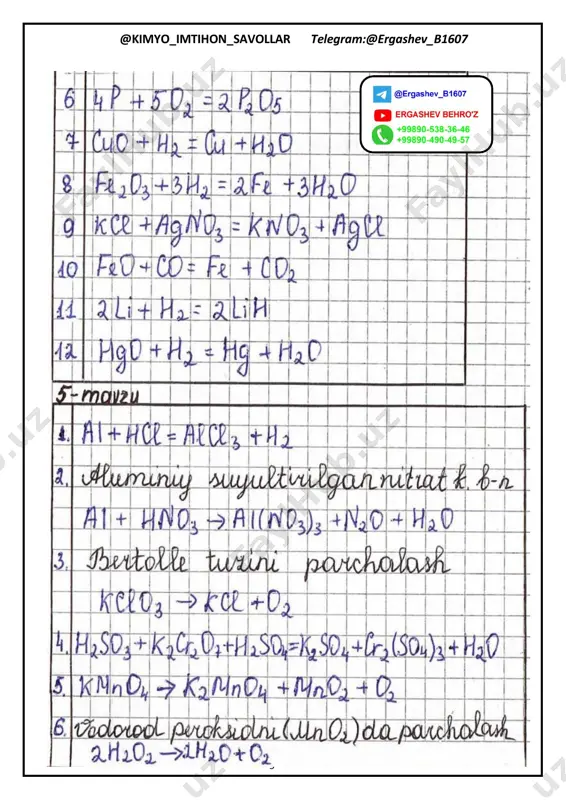 @KIMYO_IMTIHON_SAVOLLAR Telegram:@Ergashev_B1607
@Ergashev_B1607
ERGASHEV BEHRO'Z
+99890-538-36-46
+99890-490-49-57
6 4P + 5O₂ = 2P₂O₅
7 CuO + H₂ = Cu + H₂O
8 Fe₂O₃ + 3H₂ = 2Fe + 3H₂O
9 KCl + AgNO₃ = KNO₃ + AgCl
10 FeO + CO = Fe + CO₂
11 2Li + H₂ = 2LiH
12 HgO + H₂ = Hg + H₂O
5-mavzu
1. Al + HCl = AlCl₃ + H₂
2. Aluminiy suyultirilgan nitrat k. b-n
Al + HNO₃ → Al(NO₃)₃ + N₂O + H₂O
3. Bertolle tuzini parchalash
KClO₃ → KCl + O₂
4. H₂SO₃ + K₂Cr₂O₇ + H₂SO₄ = K₂SO₄ + Cr₂(SO₄)₃ + H₂O
5. KMnO₄ → K₂MnO₄ + MnO₂ + O₂
6. Vodorod peroksidni (MnO₂) da parchalash
2H₂O₂ → 2H₂O + O₂
FayllHub.uz